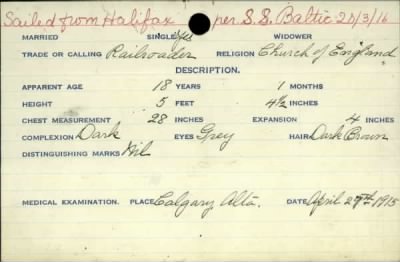 Sailed from Halifax per S.S. Baltic 21/3/16
MARRIED SINGLE Yes WIDOWER
TRADE OR CALLING Railroader RELIGION Church of England
DESCRIPTION.
APPARENT AGE 18 YEARS 1 MONTHS
HEIGHT 5 FEET 4½ INCHES
CHEST MEASUREMENT 28 INCHES EXPANSION 4 INCHES
COMPLEXION Dark EYES Grey HAIR Dark Brown
DISTINGUISHING MARKS Nil
MEDICAL EXAMINATION. PLACE Calgary Alta. DATE April 27th 1915